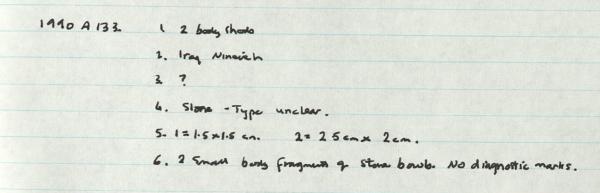 1990 A 133. 1 2 body sherds
2. Iraq Nineveh
3. ?
4. Stone - Type unclear.
5. 1 = 1.5 x 1.5 cm. 2 = 2.5 cm x 2 cm.
6. 2 small body fragments of stone bowls. No diagnostic marks.